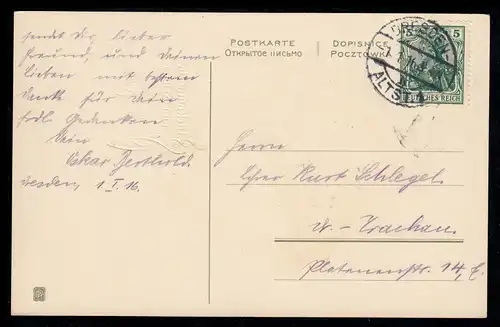 sendet Dir, lieber
Freund, und Deinen
Lieben mit
Dank für Dein
frdl. Gedenken
Dein
Oskar Berthold.
resden, 1.I.16.
POSTKARTE
ОТКРЫТОЕ ПИСЬМО
DOPISNICE
POCZTÓWKA
DRESDEN
ALTST.
5
DEUTSCHES REICH
Herrn
Kurt Schlegel
Trachau
Platanenstr. 14, E.